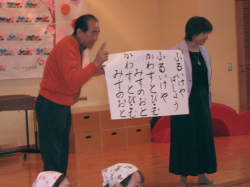 ふるいけや
ばしょう
ふるいけや
かわずとびこむ
みずのおと
かわずとびこむ
みずのおと